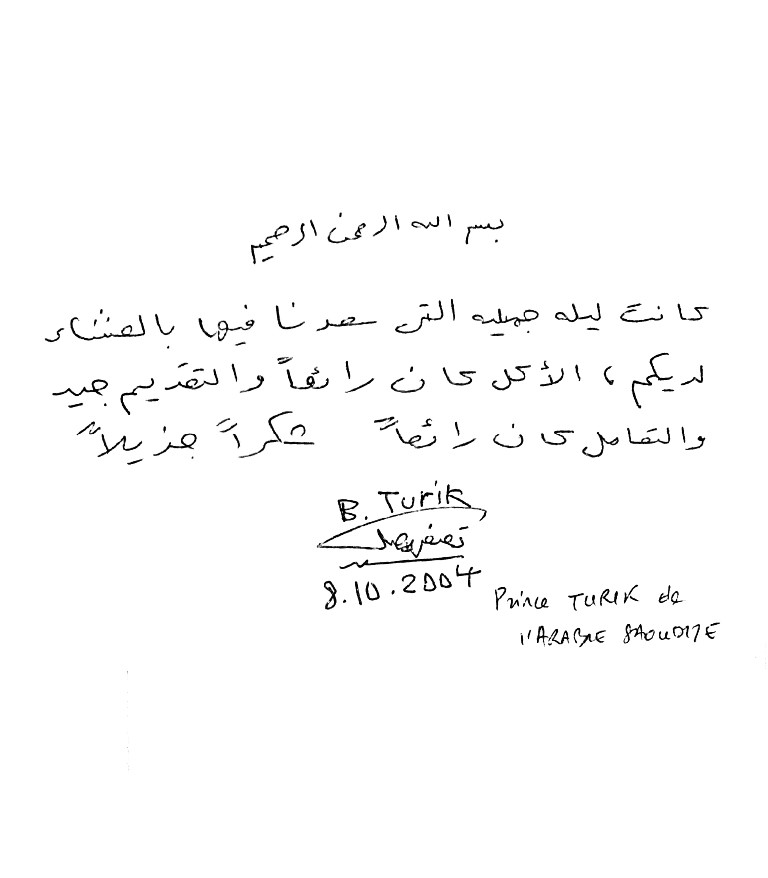 بسم الله الرحمن الرحيم
كانت ليله جميله التي سعدنا فيها بالعشاء
لديكم ، الأكل كان رائعاً والتقديم جيد
والتعامل كان رائعاً شكراً جزيلاً
B. Turik
8.10.2004
Prince TURIK de
l'ARABIE SAOUDITE